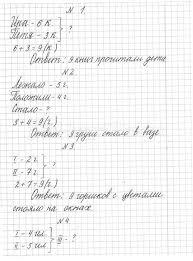 N 1.
Ира - 6 к.
Петя - 3 к. } ?
6 + 3 = 9 (к)
Ответ: 9 книг прочитали дети
N 2
Лежало - 5 г.
Положили - 4 г.
Стало - ?
5 + 4 = 9 (г.)
Ответ: 9 груш стало в вазе
N 3
I - 2 г.
II - 7 г. } ?
2 + 7 = 9 (г.)
Ответ: 9 горшков с цветами
стояло на окнах
N 4
I - 4 ш.
II - 5 ш. } III - ?